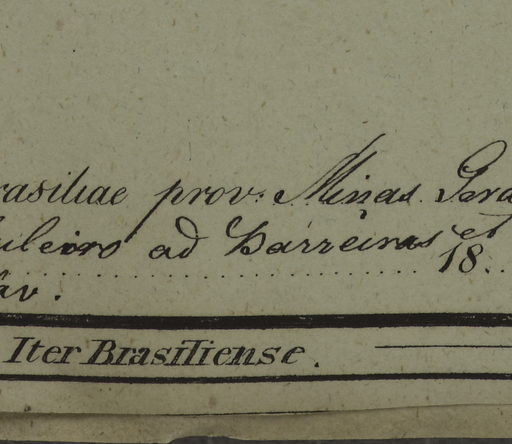 rasiliae prov. Minas Gera
uleiro ad Barreiras et
18
av.
Iter Brasiliense.